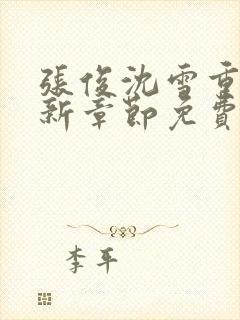 張俊沈雪重
新章節免費
李平